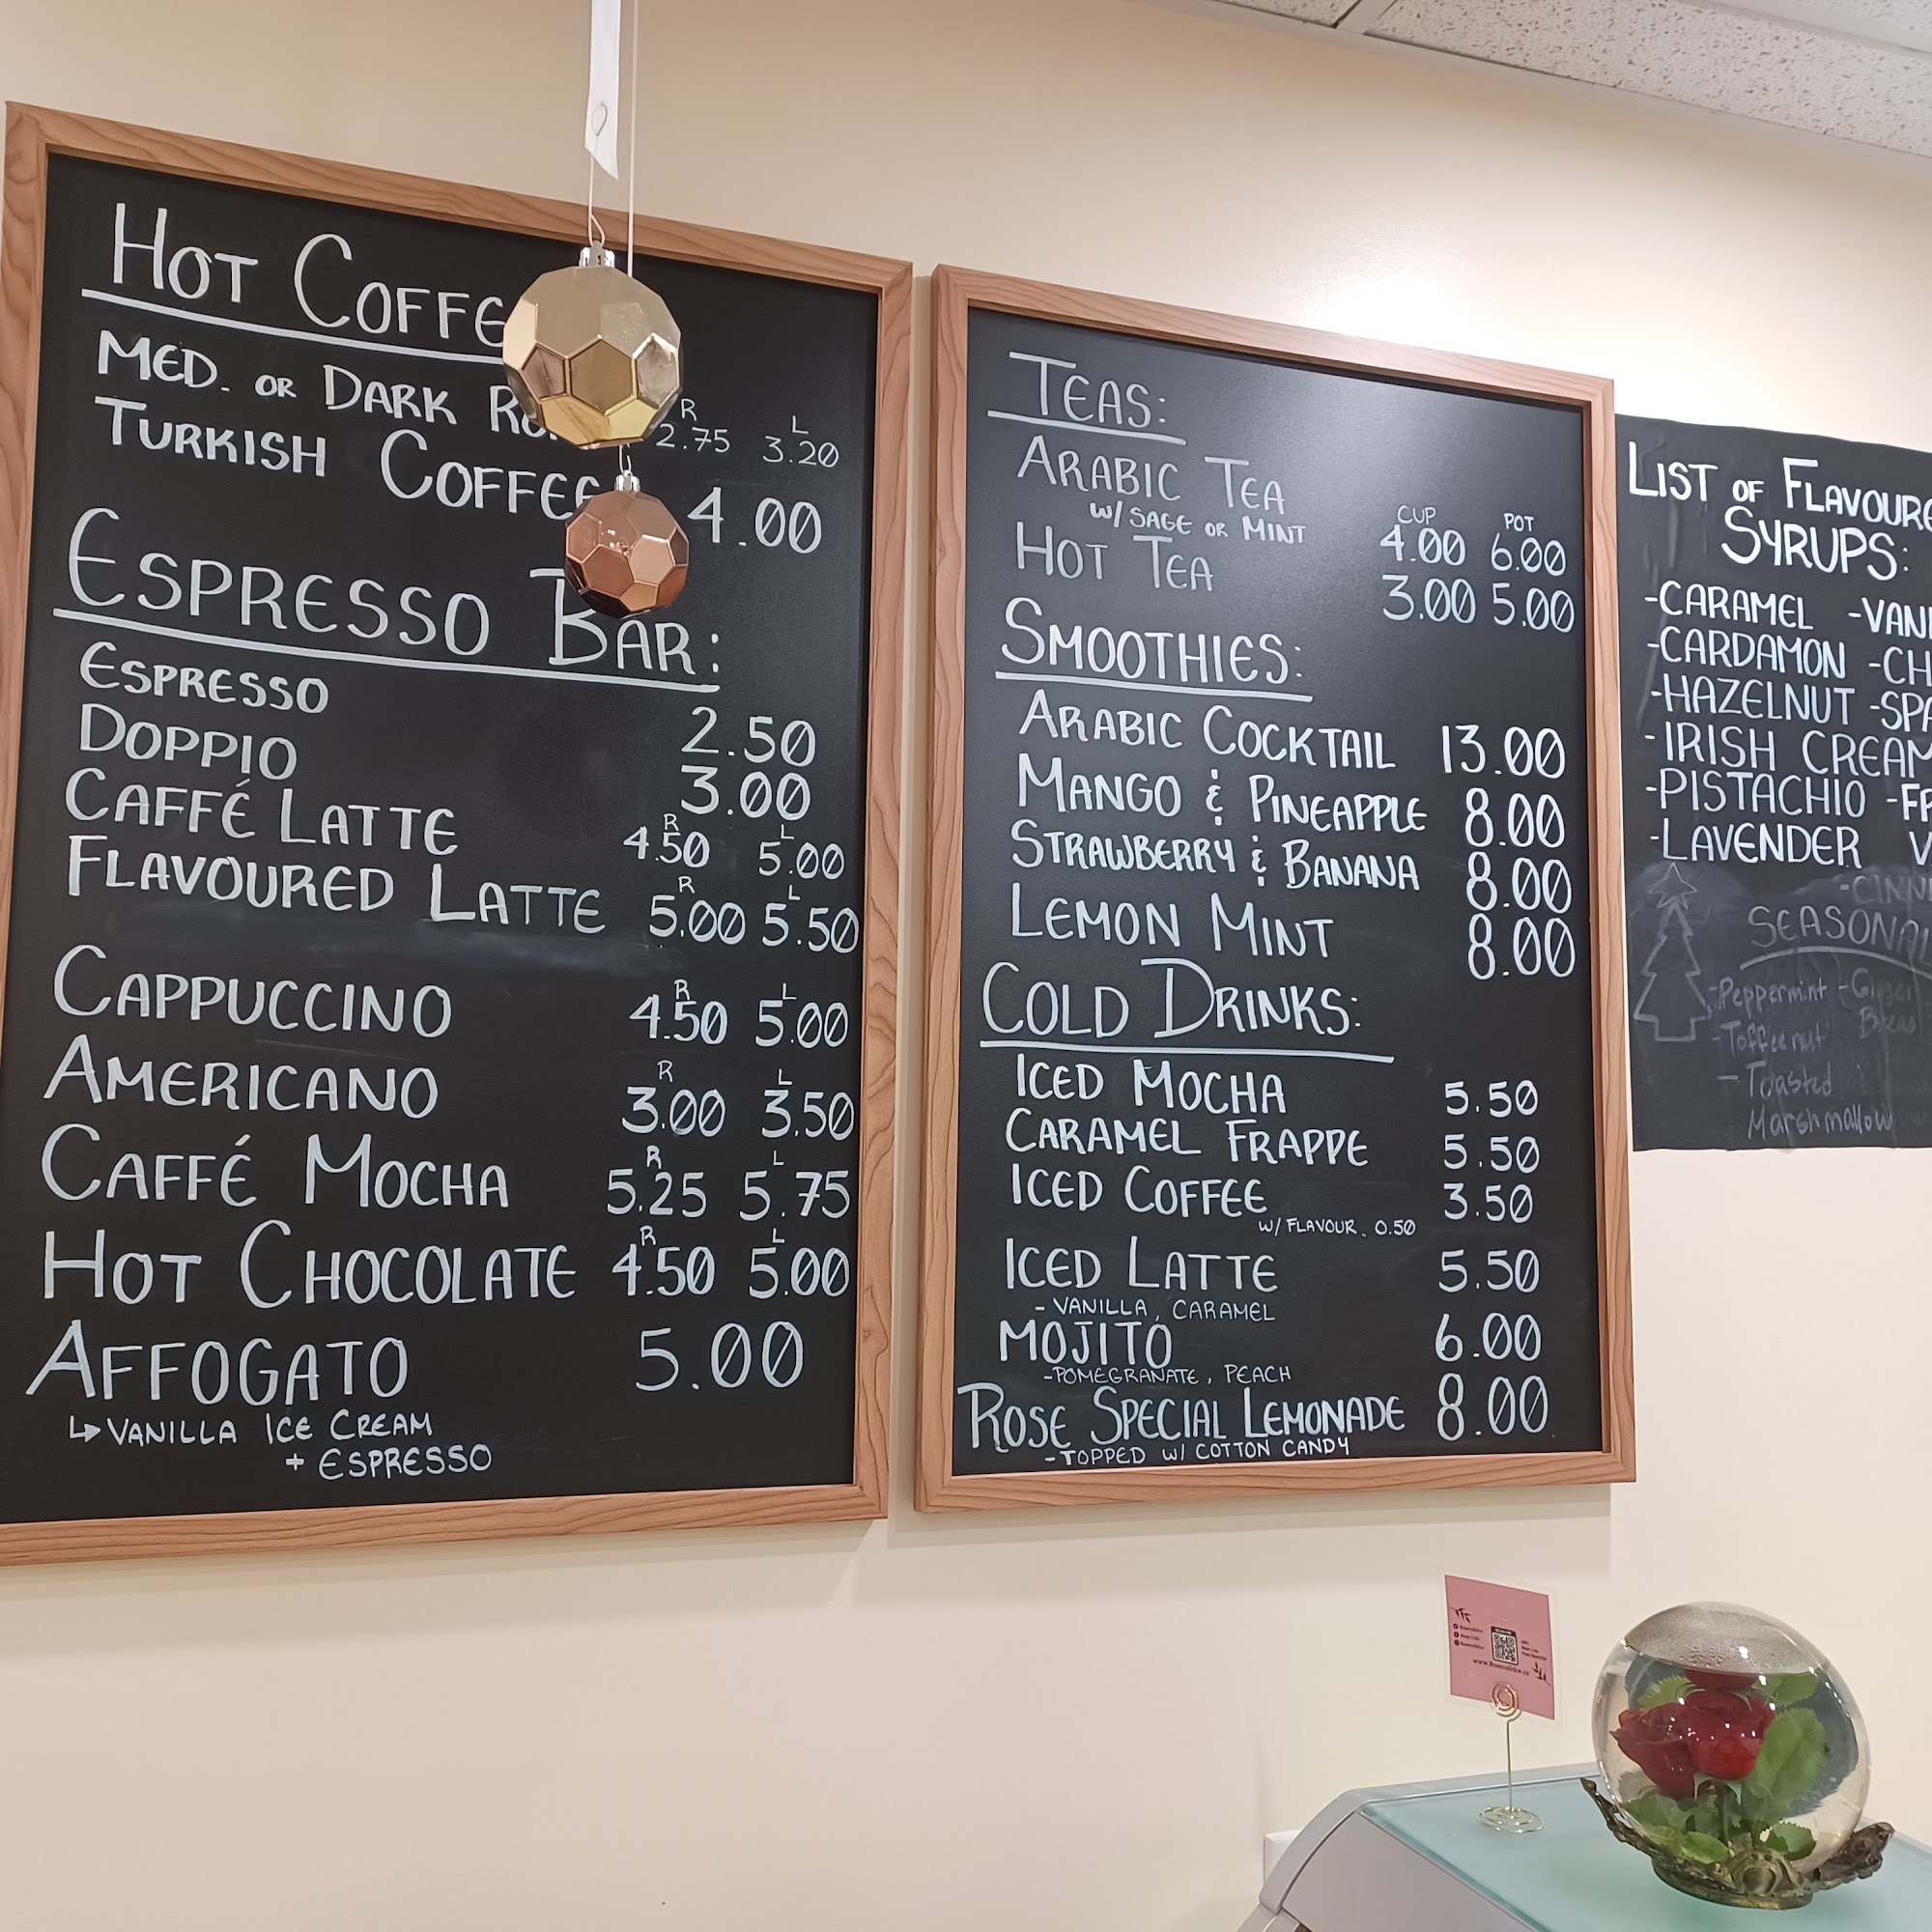 HOT COFFE
MED. OR DARK R
R L
2.75 3.20
TURKISH COFFEE 4.00
ESPRESSO BAR:
ESPRESSO 2.50
DOPPIO 3.00
R L
CAFFÉ LATTE 4.50 5.00
R L
FLAVOURED LATTE 5.00 5.50
R L
CAPPUCCINO 4.50 5.00
R L
AMERICANO 3.00 3.50
R L
CAFFÉ MOCHA 5.25 5.75
R L
HOT CHOCOLATE 4.50 5.00
AFFOGATO 5.00
VANILLA ICE CREAM
+ ESPRESSO
TEAS:
CUP POT
ARABIC TEA 4.00 6.00
W/ SAGE OR MINT
HOT TEA 3.00 5.00
SMOOTHIES:
ARABIC COCKTAIL 13.00
MANGO & PINEAPPLE 8.00
STRAWBERRY & BANANA 8.00
LEMON MINT 8.00
COLD DRINKS:
ICED MOCHA 5.50
CARAMEL FRAPPE 5.50
ICED COFFEE 3.50
W/ FLAVOUR. 0.50
ICED LATTE 5.50
- VANILLA, CARAMEL
MOJITO 6.00
-POMEGRANATE, PEACH
ROSE SPECIAL LEMONADE 8.00
-TOPPED W/ COTTON CANDY
LIST OF FLAVOURE
SYRUPS:
-CARAMEL -VANI
-CARDAMON -CH
-HAZELNUT -SPA
-IRISH CREAM
-PISTACHIO -FR
-LAVENDER V
-CINN
SEASONAL
-Peppermint -Ginger
Bread
-Toffeenut
- Toasted
Marshmallow